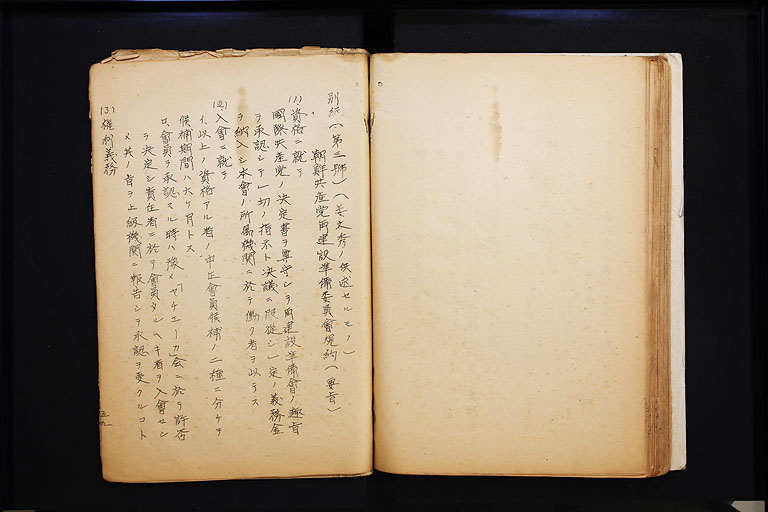 別紙(第三號)(姜文秀ノ供述セルモノ)
朝鮮共産党再建設準備委員會規約(要旨)
(1)資格ニ就テ
國際共産党ノ決定書ヲ尊守シテ再建設準備會ノ趣旨
ヲ承認シテ一切ノ指示ト决議ニ服從シ一定ノ義務金
ヲ納入シ本會ノ所属機関ニ於テ働ク者ヲ以テス
(2)入會ニ就テ
イ、以上ノ資格アル者ノ中正會員候補ノ二種ニ分ケテ
候補期間ハ六ケ月トス
ロ、會員ヲ承認スル時ハ豫メ「ヤチエーカ」会ニ於テ許否
ヲ决定シ責任者ニ於テ會員タルヘキ者ヲ入會セシ
メ其ノ旨ヲ上級機関ニ報告シテ承認ヲ受クルコト
(3)權利義務